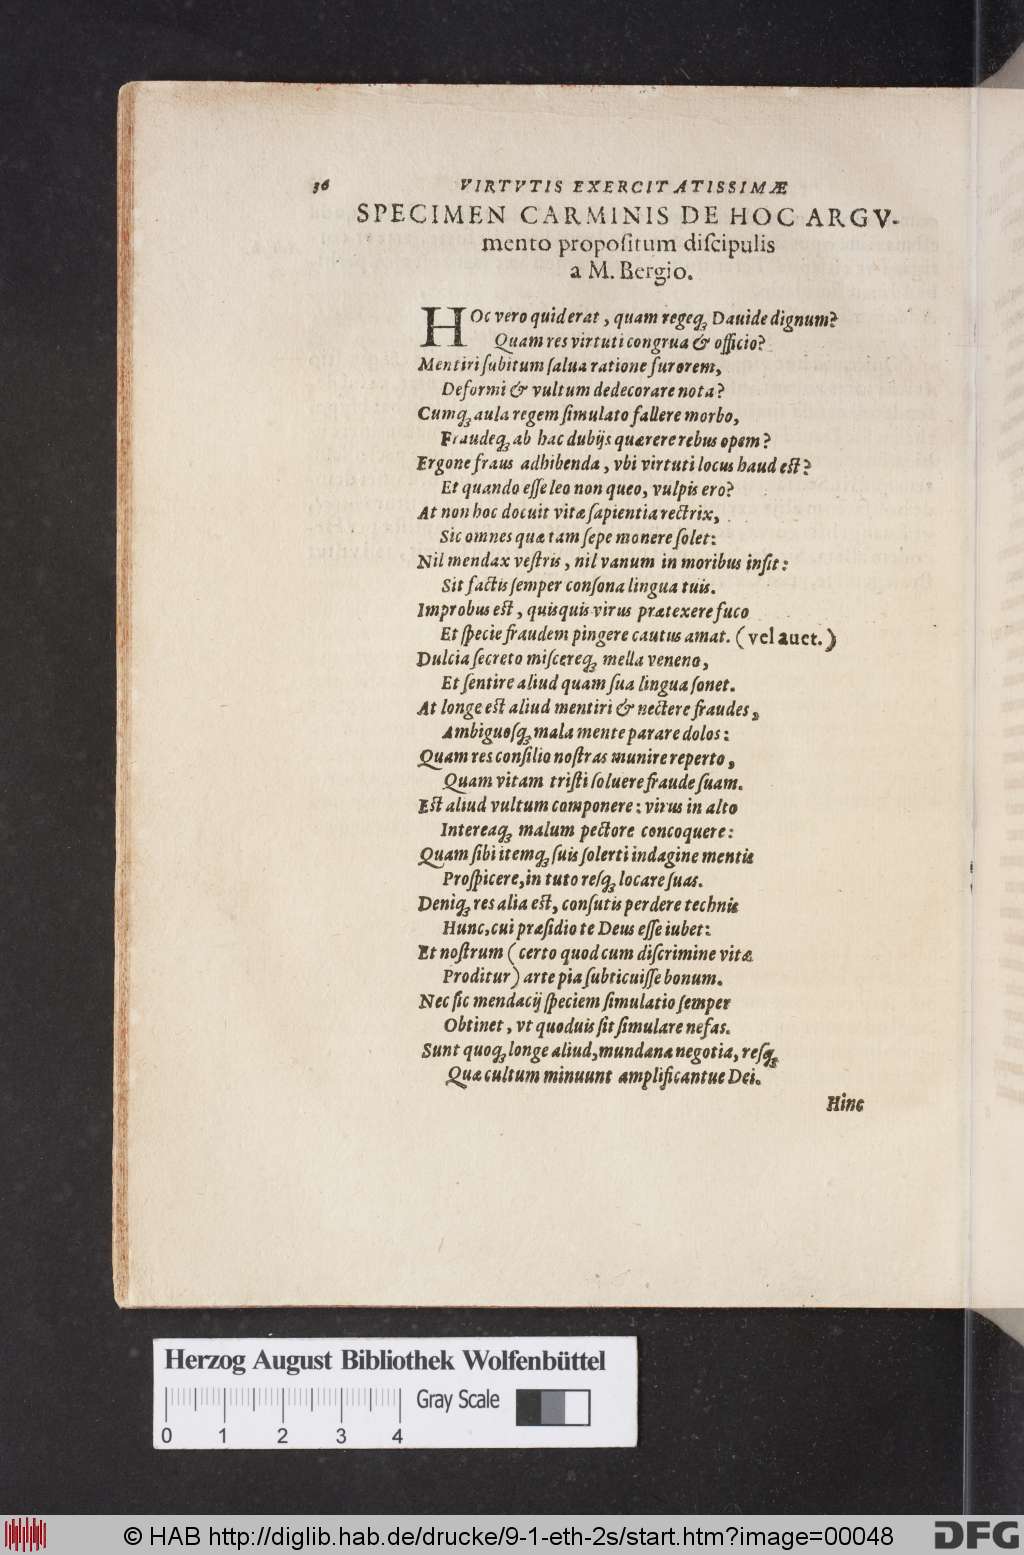 36 VIRTVTIS EXERCITATISSIMÆ
SPECIMEN CARMINIS DE HOC ARGV-
mento propoſitum diſcipulis
a M. Bergio.
HOc vero quid erat, quam regeq́ꝫ Dauide dignum?
Quam res virtuti congrua & officio?
Mentiri ſubitum ſalua ratione furorem,
Deformi & vultum dedecorare nota?
Cumq́ꝫ aula regem ſimulato fallere morbo,
Fraudeq́ꝫ ab hac dubijs quærere rebus opem?
Ergone fraus adhibenda, vbi virtuti locus haud eſt?
Et quando eſſe leo non queo, vulpis ero?
At non hoc docuit vitæ ſapientia rectrix,
Sic omnes quæ tam ſepe monere ſolet:
Nil mendax veſtris, nil vanum in moribus inſit:
Sit factis ſemper conſona lingua tuis.
Improbus eſt, quisquis virus prætexere fuco
Et ſpecie fraudem pingere cautus amat. (vel auet.)
Dulcia ſecreto miſcereq́ꝫ mella veneno,
Et ſentire aliud quam ſua lingua ſonet.
At longe eſt aliud mentiri & nectere fraudes,
Ambiguoſq́ꝫ mala mente parare dolos:
Quam res conſilio noſtras munire reperto,
Quam vitam triſti ſoluere fraude ſuam.
Eſt aliud vultum componere: virus in alto
Intereaq́ꝫ malum pectore concoquere:
Quam ſibi itemq́ꝫ ſuis ſolerti indagine mentis
Proſpicere, in tuto reſq́ꝫ locare ſuas.
Deniq́ꝫ res alia eſt, conſutis perdere technis
Hunc, cui præſidio te Deus eſſe iubet:
Et noſtrum (certo quod cum diſcrimine vitæ
Proditur) arte pia ſubticuiſſe bonum.
Nec ſic mendacij ſpeciem ſimulatio ſemper
Obtinet, vt quoduis ſit ſimulare nefas.
Sunt quoq́ꝫ longe aliud, mundana negotia, reſq́ꝫ
Quæ cultum minuunt amplificantue Dei.
Hinc
Herzog August Bibliothek Wolfenbüttel
Gray Scale
0 1 2 3 4
© HAB http://diglib.hab.de/drucke/9-1-eth-2s/start.htm?image=00048
DFG